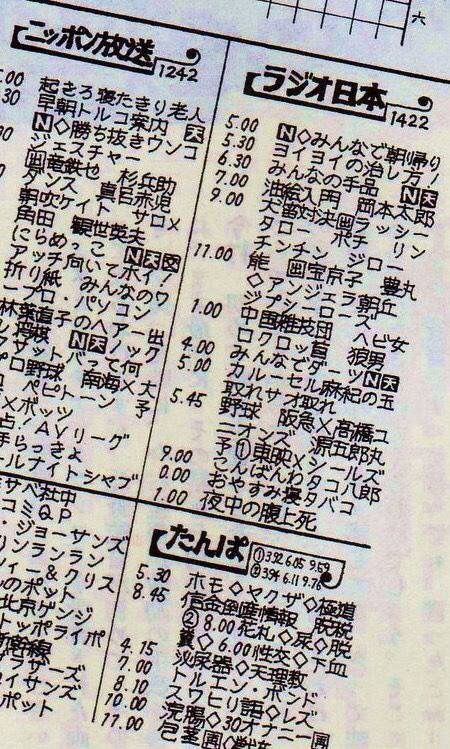 六
ニッポン放送
1242
.00 起きろ寝たきり老人
30 早朝トルコ案内 天
N◇勝ち抜きウンコ
ジェスチャー
画竜鉄也 杉兵助
ダンス 真目赤児
朝吹ケイト サロメ
角田 観世英夫
にらめっこ N天交
アッチ向いてホイ!
折り紙 みんなのワ
ープロ・パソコン
林葉直子のヘアー出
し将棋 N天ノック
クザットバって何
プロ野球 南海×大
ペピトーン 予
×ボッツ
点!AVリーグ
手らっきょ
ールナイトシャブ
ラジオ日本
1422
5.00 N◇みんなで朝帰り
5.30 ヨイヨイの治し方
6.30 みんなの手品 N天
7.00 油絵入門 岡本太郎
9.00 犬番対決画ラッシー
タロー ポチ リン
チンチン ジロー
11.00 能 画宝京子 豊丸
◇アンジェラ朝丘
ジプシーローズ
1.00 中国雑技団 ヘビ女
ロクロッ首 狼男
4.00 みんなでダーツN天
5.00 カルーセル麻紀の玉
取れサオ取れ
5.45 野球 阪急×高橋ユ
ニオンズ 源五郎丸
予①東映×シールズ
9.00 こんばんわタコ八郎
0.00 おやすみ寝タバコ
1.00 夜中の腹上死
サベ社中
コミQP
・ジョーサンズ
リンランラン
ィー&クリス
のポット
北京ゲンジ
トッポライポ
新幹線
ブラザーズ
イサンズ
ポット
たんぱ
①3.92 6.05 9.59
②3.94 6.11 9.76
5.30 ホモ◇ヤクザ◇極道
8.45 信金倒産情報 脱税
②8.00花札◇尿◇脱
糞◇6.00性交◇下血
4.15 泌尿器◇天理教
7.00 トルエン・ボンド
8.10 スワヒリ語◇レズ
10.00 浣腸◇30オナニー画
11.00